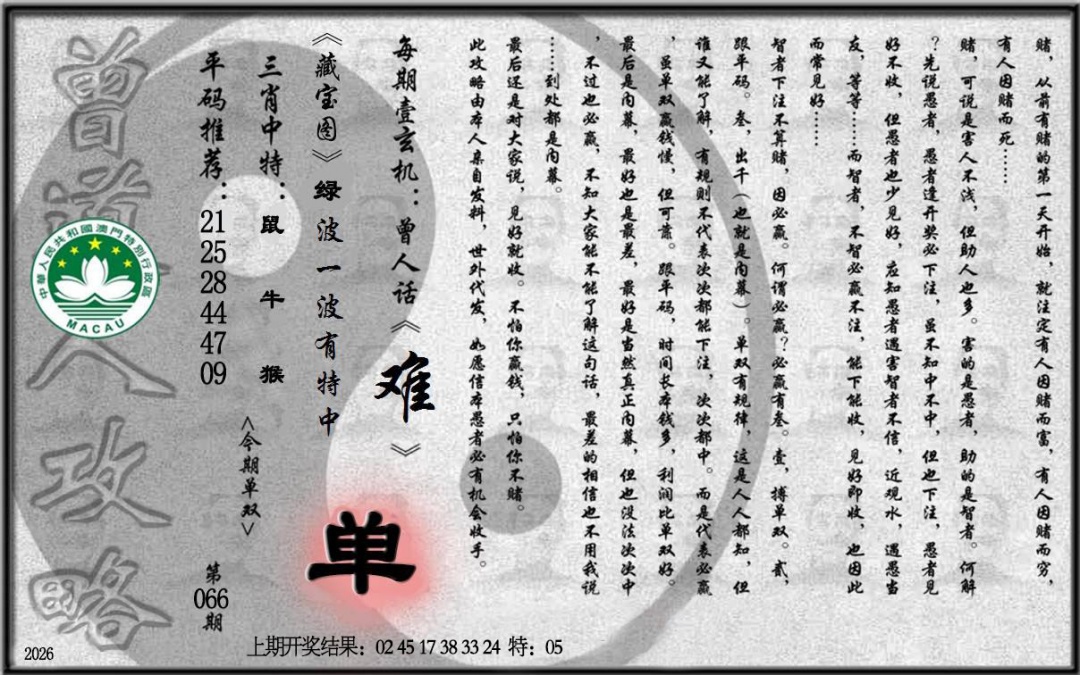 赌，从前有赌的第一天开始，就注定有人因赌而富，有人因赌而穷，
有人因赌而死……
赌，可说是害人不浅，但助人也多。害的是愚者，助的是智者。何解
？先说愚者，愚者逢开奖必下注，虽不知中不中，但也下注，愚者见
好不收，但愚者也少见好，应知愚者遇害智者不信，近观水，遇愚当
友，等等……而智者，不智必赢不注，能下能收，见好即收，也因此
而常见好……
智者下注不算赌，因必赢。何谓必赢？必赢有叁。壹，搏单双。贰，
跟单码。叁，出千（也就是内幕）。单双有规律，这是人人都知，但
谁又能了解，有规则不代表次次都能下注，次次都中。而是代表必赢
，虽单双赢钱慢，但可靠。跟单码，时间长本钱多，利润比单双好。
最后是内幕，最好也是最差，最好是当然真正内幕，但也没法次次中
，不过也必赢，不知大家能不能了解这句话，最差的相信也不用我说
……到处都是内幕。
最后还是对大家说，见好就收。不怕你赢钱，只怕你不赌。
此攻略由本人亲自发料，世外代发，如愿信本愚者必有机会收手。
每期壹玄机：曾人话《难》
《藏宝图》绿波一波有特中
单
三肖中特：鼠 牛 猴
<今期单双>
平码推荐：21 25 28 44 47 09
第066期
曾道人攻略
中華人民共和國澳門特別行政區
MACAU
2026
上期开奖结果：02 45 17 38 33 24 特：05